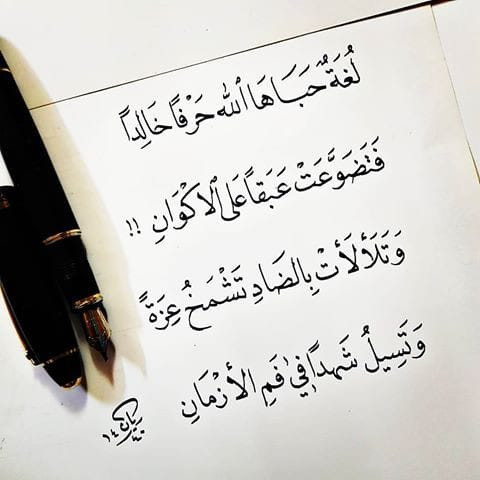 لُغَةٌ حَبَاهَا ٱللهُ حَرْفًا خَالِدًا
فَتَضَوَّعَتْ عَبَقًا عَلَى ٱلاكْوَانِ !!
وَتَلَأْلَأَتْ بِالضَادِ تَشْمَخُ عِزَةً
وَتَسِيلُ شَهدًا فِي فَمِ الأَزْمَانِ